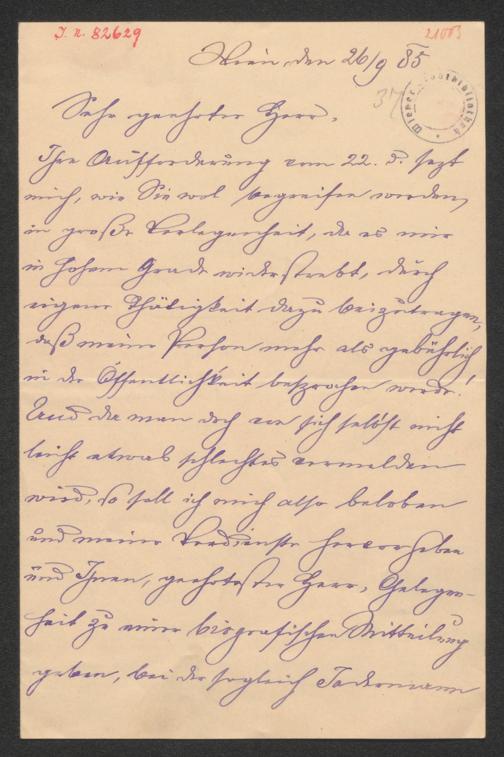 J. N. 82629
21003
Wien den 26/9 85
37
Wiener Stadtbibliothek
Sehr geehrter Herr,
Ihre Aufforderung vom 22. d. sezt
mich, wie Sie wol begreifen werden,
in große Verlegenheit, da es mir
in hohem Grade widerstrebt, durch
eigene Thätigkeit dazu beizutragen,
daß meine Person mehr als gebührlich
in der Öffentlichkeit besprochen werde!
Und da man doch von sich selbst nicht
leicht etwas schlechtes vermelden
wird, so soll ich mich also beloben
und meine Verdienste hervorheben
und Ihnen, geehrtester Herr, Gelegen-
heit zu einer biografischen Mitteilung
geben, bei der sogleich Jedermann